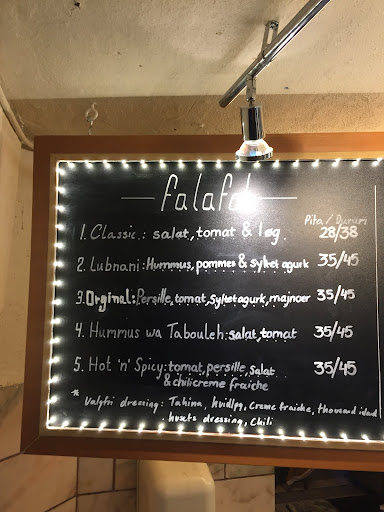 falafel
Pita / Durum
1. Classic: salat, tomat & løg 28/38
2. Lubnani: Hummus, pommes & syltet agurk 35/45
3. Orginal: Persille, tomat, syltet agurk, majnoer 35/45
4. Hummus wa Tabouleh: salat, tomat 35/45
5. Hot 'n' Spicy: tomat, persille, salat 35/45
& chilicreme fraiche
* Valgfri dressing: Tahina, hvidløg, Creme fraiche, thousand island
husets dressing, Chili